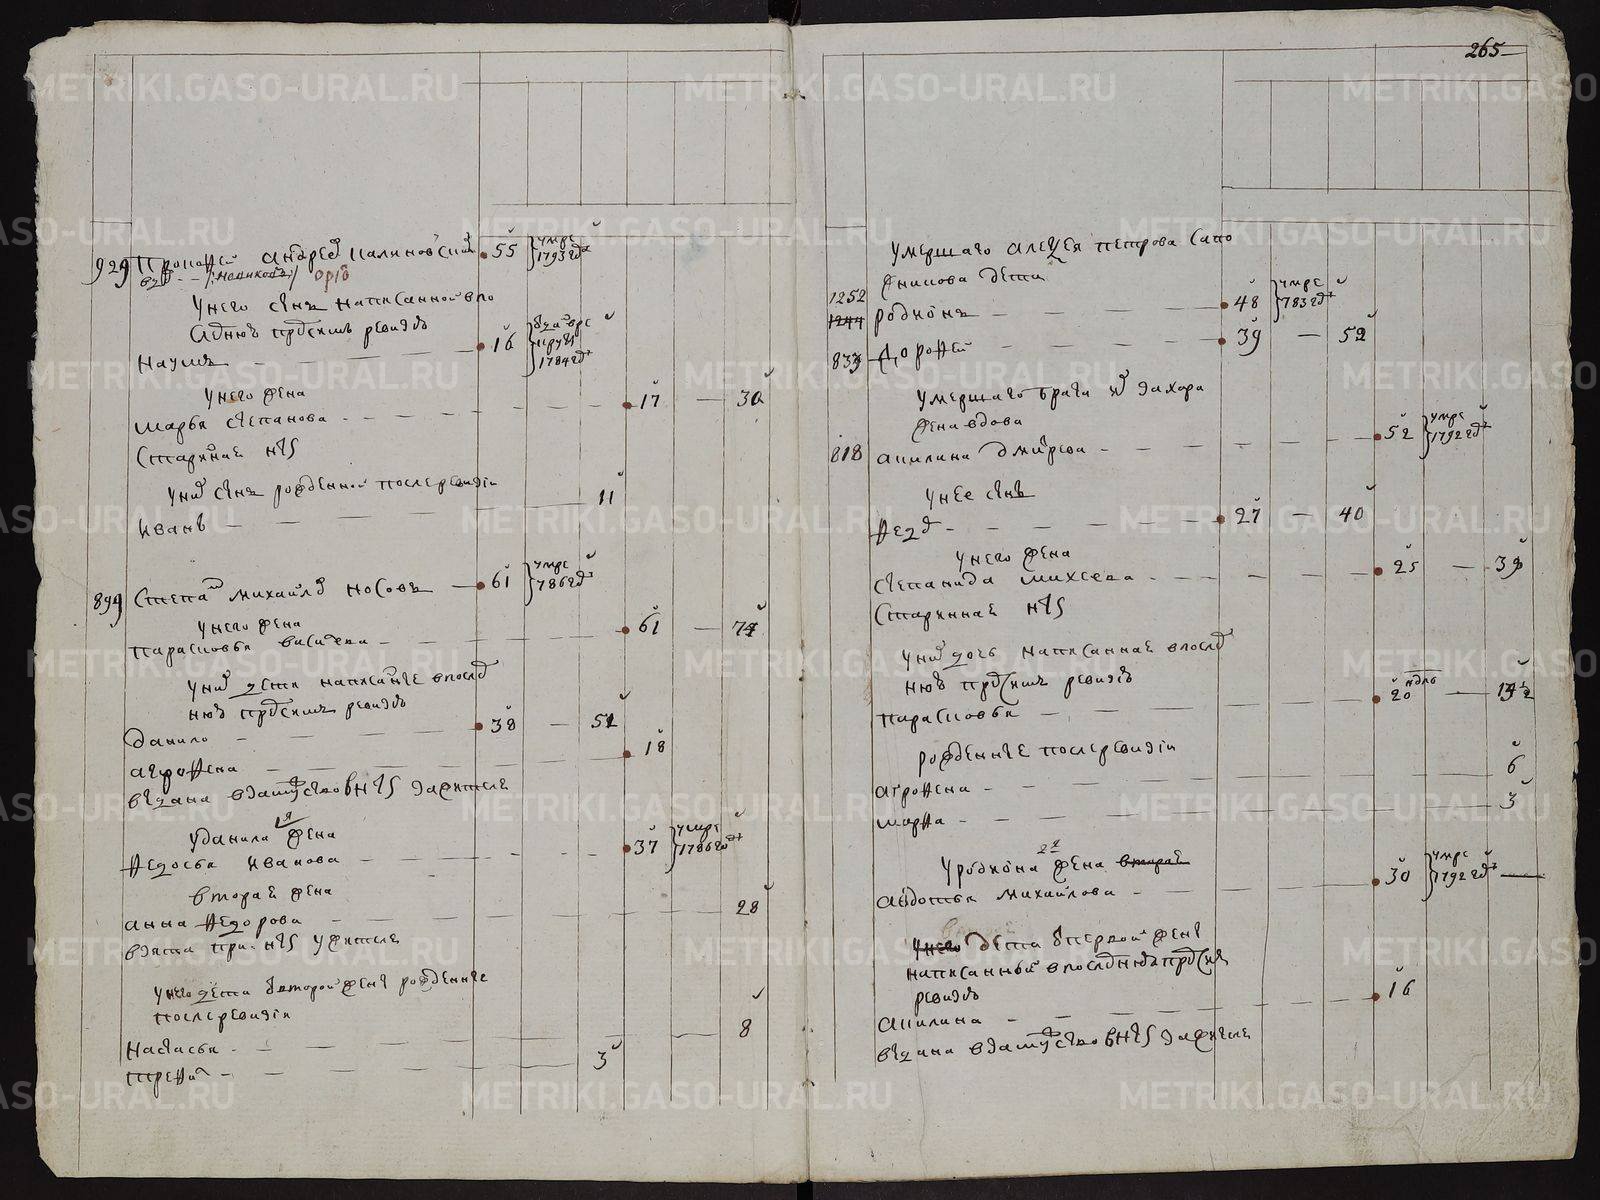 929 Прокофей андреев калиновский 55 умре 1793 году
У него сын написанной в по
следнюю пред сим ревизию
Наумъ 16 1784 году
У него жена
марья степанова 17 30
старинная
У них сын рожденной после ревизии
иванъ 11
899 Степан михайлов носовъ 61 умре 786 году
У него жена
парасковья 61 74
У них дети написанные в послед
нюю пред сим ревизию
данило 38 52
агрофена 18
выдана в замужество в за жителя
У данила 1я жена
федосья иванова 37 умре 1786 году
вторая жена
анна федорова 28
взята при у жителя
У него дети с второй жены рожденные
после ревизии
настасья 8
трефил 3
265
Умершаго алексея петрова сапо
жникова дети
1252
1244 родионъ 48 умре 783 году
833 дорофей 39 52
Умершаго брата их захара
жена вдова
818 акилина дмитрева 52 умре 1792 году
У нее сынъ
федор 27 40
У него жена
степанида михеева 25 39
старинная
У них дочь написанная в послед
нюю пред сим ревизию
парасковья 20
рожденные после ревизии
агрофена 6
марфа 3
У родиона 2я жена вторая
авдотья михайлова 30 умре 1792 году
У него дети с первой жены
написанные в последнюю пред сим
ревизию
акилина 16
выдана в замужество в за жителя
METRIKI.GASO-URAL.RU